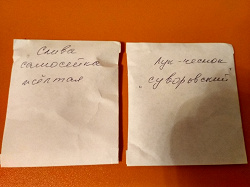 Слива
самосейка
жёлтая
Лук-чеснок
"суворовский"